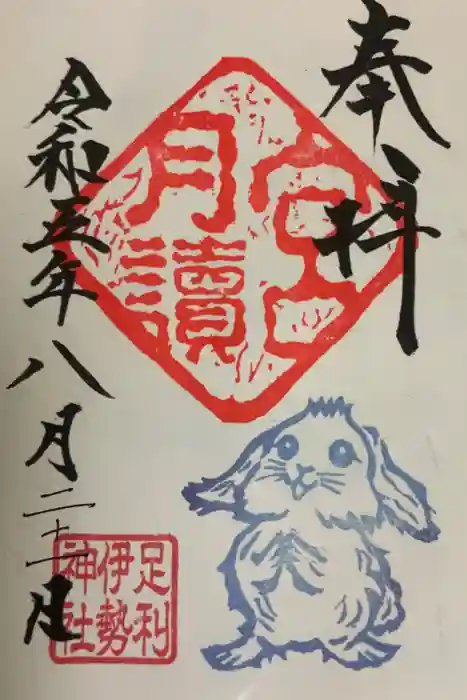 奉拝
月讀宮
令和五年八月二十一日
足利
伊勢
神社